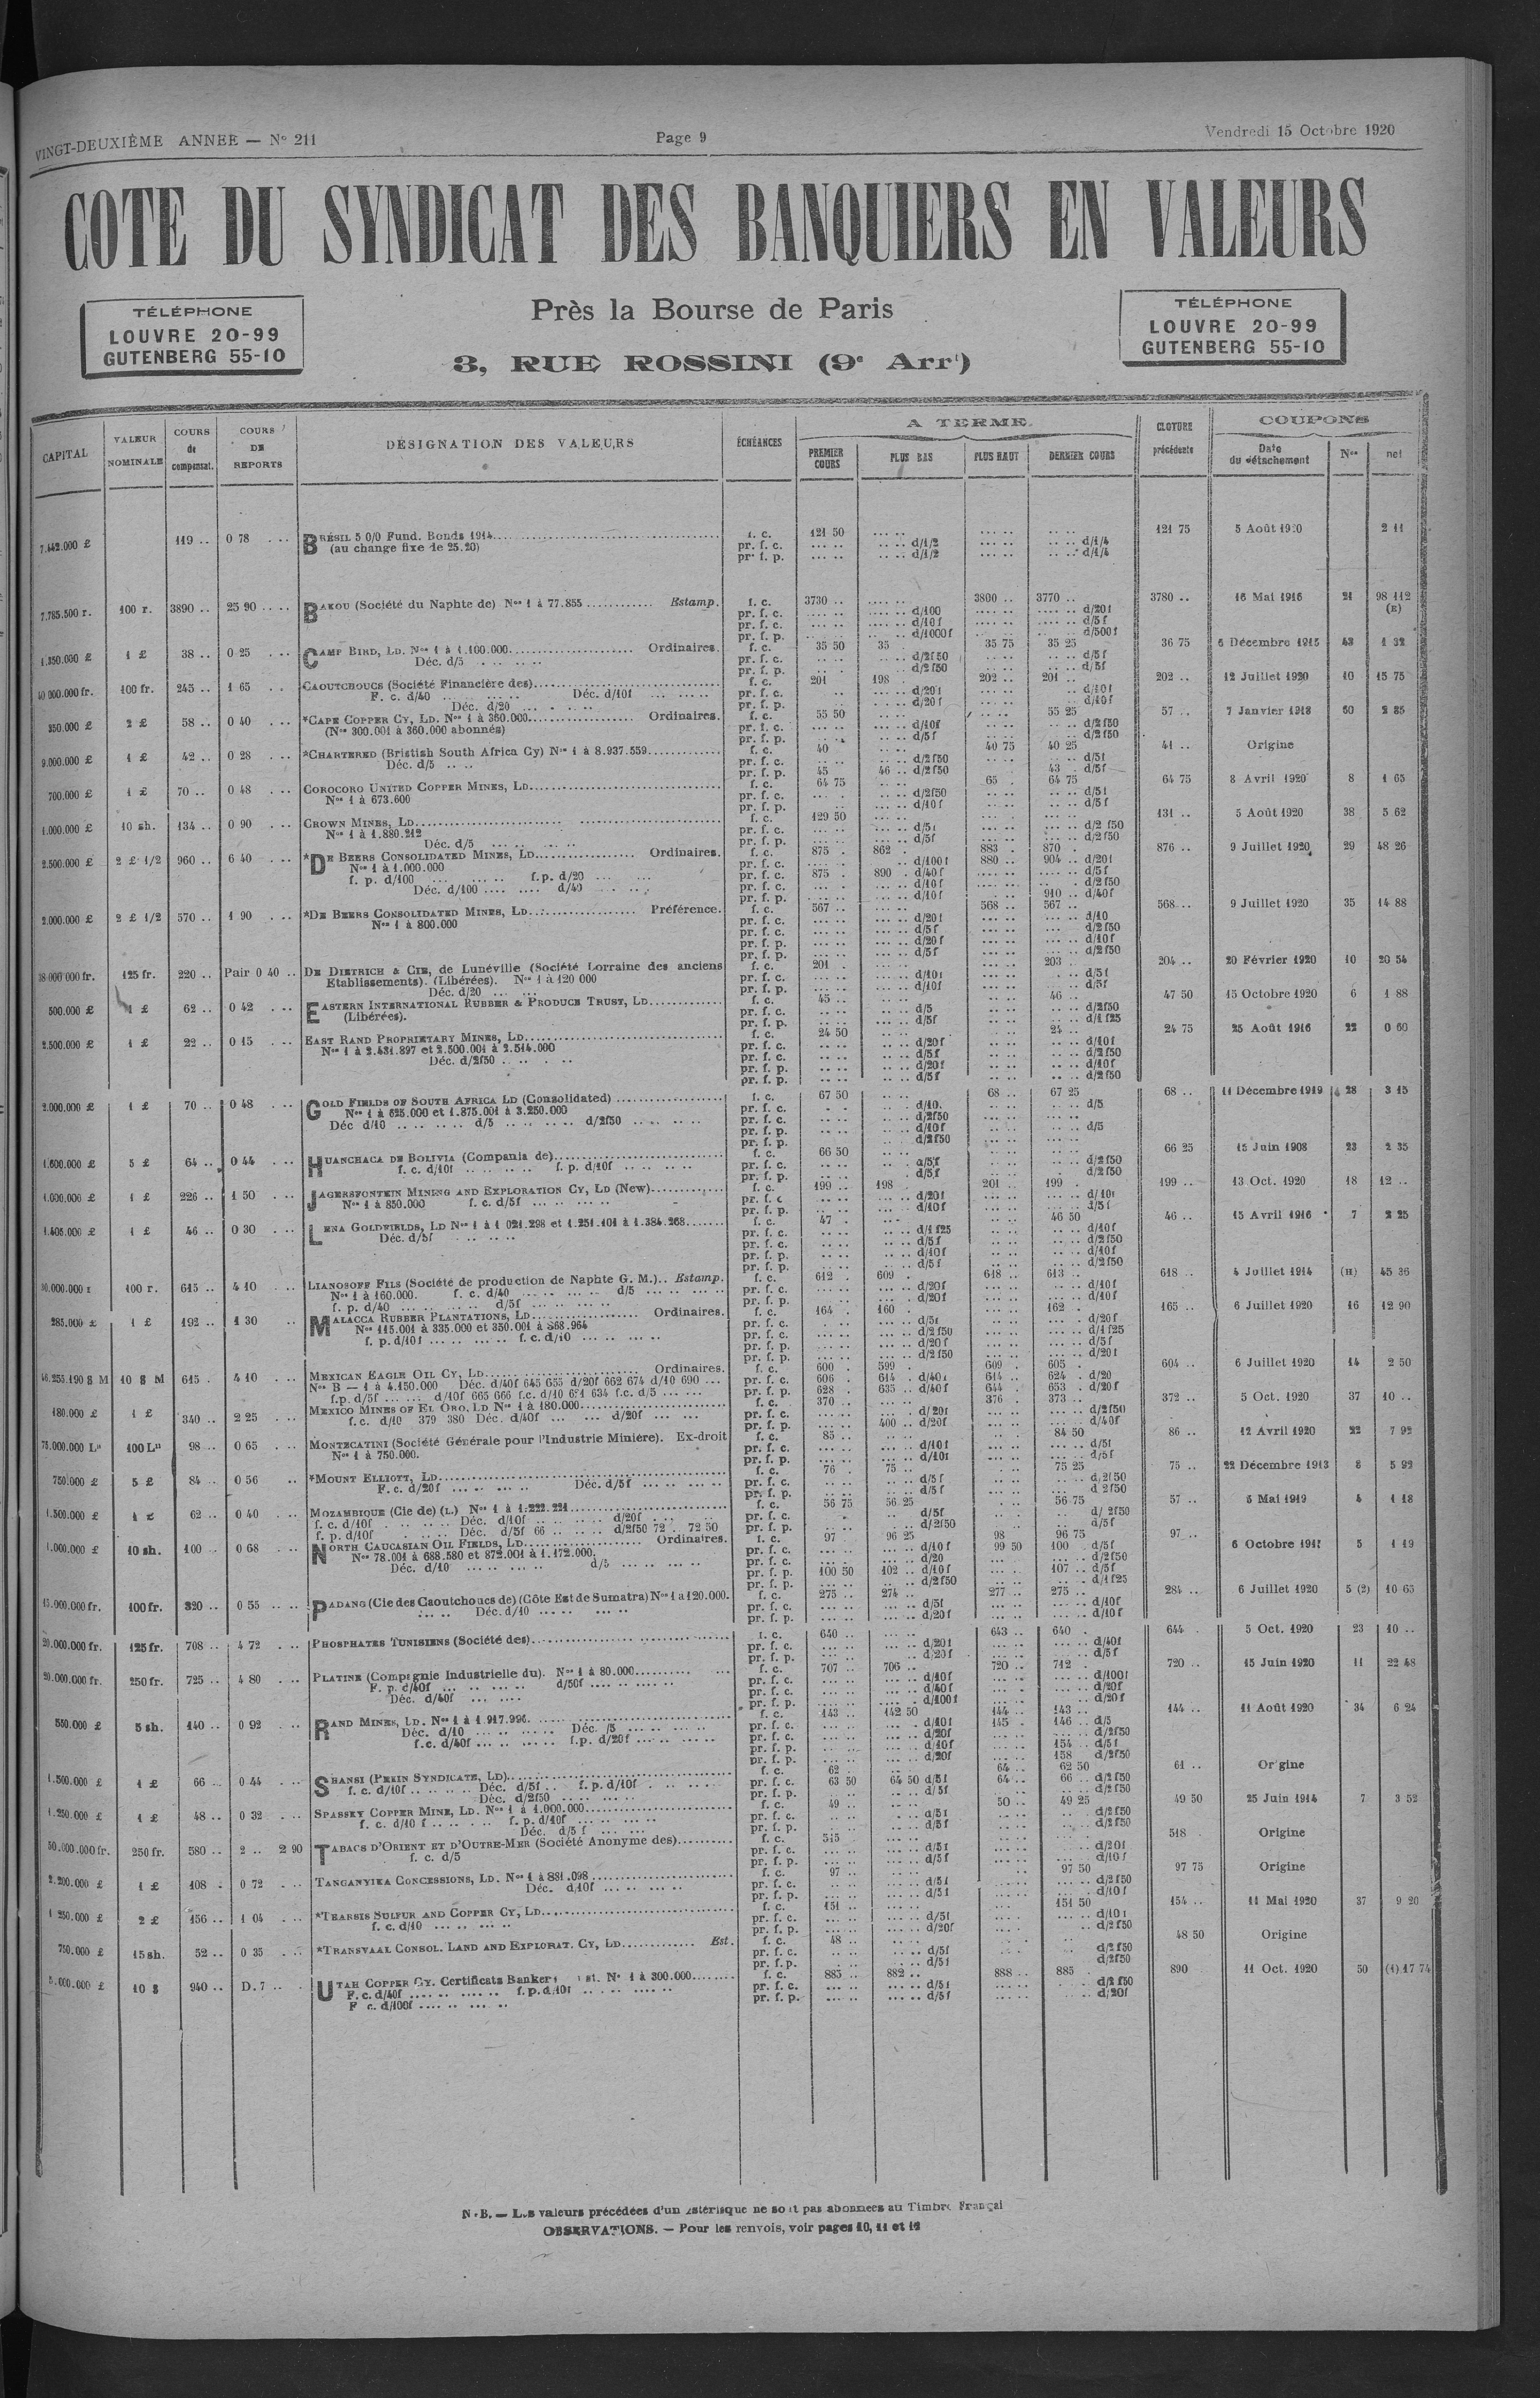 VINGT-DEUXIÈME ANNEE — N° 211 Page 9 Vendredi 15 Octobre 1920
COTE DU SYNDICAT DES BANQUIERS EN VALEURS
Près la Bourse de Paris
3, RUE ROSSINI (9e Arrt)
TÉLÉPHONE
LOUVRE 20-99
GUTENBERG 55-10
TÉLÉPHONE
LOUVRE 20-99
GUTENBERG 55-10
CAPITAL VALEUR NOMINALE COURS de compensat. COURS DE REPORTS DÉSIGNATION DES VALEURS ÉCHÉANCES A TERME COUPONS
PREMIER COURS PLUS BAS PLUS HAUT DERNIER COURS CLOTURE précédente Date du détachement Nos net
7.442.000 £ 119 .. 0 78 BRÉSIL 5 0/0 Fund. Bonds 1914 f. c. 121 50 121 75 5 Août 1920 2 11
(au change fixe de 25.20) pr. f. c. d/1/2 d/1/4
pr. f. p. d/1/2 d/1/4
7.785.500 r. 100 r. 3890 .. 25 90 BAKOU (Société du Naphte de) Nos 1 à 77.855 Estamp. f. c. 3730 .. 3800 .. 3770 .. 3780 .. 16 Mai 1916 21 98 112 (E)
pr. f. c. d/100 d/20f
pr. f. c. d/10f d/5f
pr. f. p. d/1000f d/500f
1.350.000 £ 1 £ 38 .. 0 25 CAMP BIRD, LD. Nos 1 à 1.100.000 Ordinaires. f. c. 35 50 35 . 35 75 35 25 36 75 6 Décembre 1915 43 1 32
Déc. d/5 pr. f. c. d/2f50 d/5f
pr. f. p. d/2f50 d/5f
40 000.000 fr. 100 fr. 245 .. 1 65 CAOUTCHOUCS (Société Financière des) f. c. 201 198 . 202 .. 201 .. 202 .. 12 Juillet 1920 10 15 75
F. c. d/40 Déc. d/10f pr. f. c. d/20f d/10f
Déc. d/20 pr. f. p. d/20f d/10f
350.000 £ 2 £ 58 .. 0 40 *CAPE COPPER CY, LD. Nos 1 à 360.000 Ordinaires. f. c. 55 50 55 25 57 .. 7 Janvier 1918 60 2 85
(Nos 300.001 à 360.000 abonnés) pr. f. c. d/10f d/2f50
pr. f. p. d/5f d/2f50
9.000.000 £ 1 £ 42 .. 0 28 *CHARTERED (Bristish South Africa Cy) Nos 1 à 8.937.559 f. c. 40 40 75 40 25 41 .. Origine
Déc. d/5 pr. f. c. d/2f50 d/5f
pr. f. p. 45 46 .. d/2f50 43 . d/5f
700.000 £ 1 £ 70 .. 0 48 COROCORO UNITED COPPER MINES, LD f. c. 64 75 65 . 64 75 64 75 8 Avril 1920 8 1 65
Nos 1 à 673.600 pr. f. c. d/2f50 d/5f
pr. f. p. d/10f d/5f
1.000.000 £ 10 sh. 134 .. 0 90 CROWN MINES, LD f. c. 129 50 131 .. 5 Août 1920 38 5 62
Nos 1 à 1.880.212 pr. f. c. d/5f d/2 f50
Déc. d/5 pr. f. p. d/5f d/2f50
2.500.000 £ 2 £ 1/2 960 .. 6 40 *DE BEERS CONSOLIDATED MINES, LD Ordinaires. f. c. 875 . 862 . 883 . 870 . 876 .. 9 Juillet 1920 29 48 26
Nos 1 à 1.000.000 pr. f. c. d/100f 880 .. 904 .. d/20f
f. p. d/100 f.p. d/20 pr. f. c. 875 . 890 . d/40f d/5f
Déc. d/100 d/40 pr. f. c. d/10f d/2f50
pr. f. p. d/10f 910 .. d/40f
2.000.000 £ 2 £ 1/2 570 .. 1 90 *DE BEERS CONSOLIDATED MINES, LD Préférence. f. c. 567 .. 568 .. 567 .. 568 .. 9 Juillet 1920 35 14 88
Nos 1 à 800.000 pr. f. c. d/20f d/10
pr. f. c. d/5f d/2f50
pr. f. p. d/20f d/10f
pr. f. p. d/5f d/2f50
125 fr. 220 .. Pair 0 40 DE DIETRICH & CIE, de Lunéville (Société Lorraine des anciens f. c. 201 . 203 .. 204 .. 20 Février 1920 10 20 54
Etablissements). (Libérées). Nos 1 à 120 000 pr. f. c. d/10f d/5f
Déc. d/20 pr. f. p. d/10f d/5f
500.000 £ 1 £ 62 .. 0 42 EASTERN INTERNATIONAL RUBBER & PRODUCE TRUST, LD f. c. 45 .. 46 .. 47 50 15 Octobre 1920 6 1 88
(Libérées). pr. f. c. d/5 d/2f50
pr. f. p. d/5f d/1f25
2.500.000 £ 1 £ 22 .. 0 15 EAST RAND PROPRIETARY MINES, LD f. c. 24 50 24 .. 24 75 25 Août 1916 22 0 60
Nos 1 à 2.431.897 et 2.500.001 à 2.514.000 pr. f. c. d/20f d/10f
Déc. d/2f50 pr. f. c. d/5f d/2f50
pr. f. p. d/20f d/10f
pr. f. p. d/5f d/2f50
2.000.000 £ 1 £ 70 .. 0 48 GOLD FIELDS OF SOUTH AFRICA LD (Consolidated) f. c. 67 50 68 .. 67 25 68 .. 11 Décembre 1919 28 3 15
Nos 1 à 625.000 et 1.875.001 à 3.250.000 pr. f. c. d/10. d/5
Déc d/10 d/5 d/2f50 pr. f. c. d/2f50
pr. f. p. d/10f d/5
pr. f. p. d/2f50
1.600.000 £ 5 £ 64 .. 0 44 HUANCHACA DE BOLIVIA (Compania de) f. c. 66 50 66 25 15 Juin 1908 23 2 35
f. c. d/10f f. p. d/10f pr. f. c. d/5f d/2f50
pr. f. p. d/5f d/2f50
1.000.000 £ 1 £ 226 .. 1 50 JAGERSFONTEIN MINING AND EXPLORATION CY, LD (New) f. c. 199 .. 198 . 201 .. 199 . 199 .. 13 Oct. 1920 18 12 ..
Nos 1 à 850.000 f. c. d/5f pr. f. c. d/20f d/10f
pr. f. p. d/10f d/5f
1.405.000 £ 1 £ 46 .. 0 30 LENA GOLDFIELDS, LD Nos 1 à 1 021.298 et 1.251.101 à 1.384.268 f. c. 47 . 46 50 46 .. 15 Avril 1916 7 2 25
Déc. d/5f pr. f. c. d/1 f25 d/10f
pr. f. c. d/5f d/2f50
pr. f. p. d/10f d/10f
pr. f. p. d/5f d/2f50
100 r. 615 .. 4 10 LIANOSOFF FILS (Société de production de Naphte G. M.).. Estamp. f. c. 612 . 609 . 618 .. 613 .. 618 .. 4 Juillet 1914 (H) 45 36
Nos 1 à 160.000. f. c. d/40 d/5 pr. f. c. d/20f d/10f
f. p. d/40 d/5f pr. f. p. d/20f d/10f
285.000 £ 1 £ 192 .. 1 30 MALACCA RUBBER PLANTATIONS, LD Ordinaires. f. c. 164 . 160 . 162 . 165 .. 6 Juillet 1920 16 12 90
Nos 115.001 à 335.000 et 350.001 à 368.964 pr. f. c. d/5f d/20f
f. p. d/10f f. c. d/10 pr. f. c. d/2f50 d/1f25
pr. f. p. d/20f d/5f
pr. f. p. d/2f50 d/20f
46.255.190 $ M 10 $ M 615 . 4 10 MEXICAN EAGLE OIL CY, LD Ordinaires. f. c. 600 . 599 . 609 . 605 . 604 .. 6 Juillet 1920 14 2 50
Nos B — 1 à 4.150.000 Déc. d/40f 645 655 d/20f 662 674 d/10 690 pr. f. c. 606 . 614 . d/40f 614 .. 624 . d/20
f.p. d/5f d/10f 665 666 f.c. d/10 631 634 f.c. d/5 pr. f. p. 628 . 635 .. d/40f 644 . 653 . d/20f
180.000 £ 1 £ 340 .. 2 25 MEXICO MINES OF EL ORO, LD Nos 1 à 180.000 f. c. 370 .. 376 . 373 .. 372 .. 5 Oct. 1920 37 10 ..
f. c. d/10 379 380 Déc. d/40f d/20f pr. f. c. d/20f d/2f50
pr. f. p. 400 .. d/20f d/40f
75.000.000 Les 100 Les 98 .. 0 65 MONTECATINI (Société Générale pour l'Industrie Minière). Ex-droit f. c. 85 .. 84 50 86 .. 12 Avril 1920 22 7 92
Nos 1 à 750.000. pr. f. c. d/10f d/5f
pr. f. p. d/10f d/5f
750.000 £ 5 £ 84 .. 0 56 *MOUNT ELLIOTT, LD f. c. 76 . 75 .. 75 25 75 .. 22 Décembre 1913 8 5 92
F. c. d/20f Déc. d/5f pr. f. c. d/5f d/2f50
pr. f. p. d/5f d 2f50
1.500.000 £ 1 £ 62 .. 0 40 MOZAMBIQUE (Cie de) (L.) Nos 1 à 1.222.221 f. c. 56 75 56 25 56 75 57 .. 5 Mai 1919 4 1 18
f. c. d/10f Déc. d/10f d/20f pr. f. c. d/5f d/2f50
f. p. d/10f Déc. d/5f 66 d/2f50 72 . 72 50 pr. f. p. d/2f50 d/5f
1.000.000 £ 10 sh. 100 .. 0 68 NORTH CAUCASIAN OIL FIELDS, LD Ordinaires. f. c. 97 96 25 98 96 75 97 .. 6 Octobre 5 1 19
Nos 78.001 à 688.580 et 872.001 à 1.172.000. pr. f. c. d/10f 99 50 100 . d/5f
Déc. d/10 d/5 pr. f. c. d/20 d/2f50
pr. f. p. 100 50 102 .. d/10f 107 .. d/5f
pr. f. p. d/2f50 d/1f25
15.000.000 fr. 100 fr. 320 .. 0 55 PADANG (Cie des Caoutchoucs de) (Côte Est de Sumatra) Nos 1 à 120.000. f. c. 275 .. 274 .. 277 .. 275 .. 284 .. 6 Juillet 1920 5 (2) 10 65
Déc. d/10 pr. f. c. d/5f d/10f
pr. f. p. d/20f d/10f
20.000.000 fr. 125 fr. 708 .. 4 72 PHOSPHATES TUNISIENS (Société des) f. c. 640 .. 643 .. 640 . 644 . 5 Oct. 1920 23 10 ..
pr. f. c. d/20f d/40f
pr. f. p. d/20f d/5f
20.000.000 fr. 250 fr. 725 .. 4 80 PLATINE (Compagnie Industrielle du). Nos 1 à 80.000 f. c. 707 .. 706 .. 720 .. 712 . 720 .. 15 Juin 1920 11 22 48
F. p. d/40f d/50f pr. f. c. d/10f d/100f
Déc. d/40f pr. f. c. d/40f d/20f
pr. f. p. d/100f d/20f
550.000 £ 5 sh. 140 .. 0 92 RAND MINES, LD. Nos 1 à 1.917.996 f. c. 143 .. 142 50 144 .. 143 .. 144 .. 11 Août 1920 34 6 24
Déc. d/10 Déc. /5 pr. f. c. d/10f 145 . 146 .. d/5
f.c. d/40f f.p. d/20f pr. f. c. d/20f d/2f50
pr. f. p. d/10f 154 .. d/5f
pr. f. p. d/20f 158 d/2f50
1.500.000 £ 1 £ 66 .. 0 44 SHANSI (PEKIN SYNDICATE, LD) f. c. 62 .. 64 .. 62 50 61 .. Origine
f. c. d/10f Déc. d/5f f. p. d/10f pr. f. c. 63 50 64 50 d/5f 64 .. 66 .. d/2f50
Déc. d/2f50 pr. f. p. d/5f d/2f50
1.250.000 £ 1 £ 48 .. 0 32 SPASSKY COPPER MINE, LD. Nos 1 à 1.000.000 f. c. 49 .. 50 .. 49 25 49 50 25 Juin 1914 7 3 52
f. c. d/10 f f. p. d/10f pr. f. c. d/5f d/2f50
Déc. d/5 f pr. f. p. d/5f d/2f50
50.000.000 fr. 250 fr. 580 .. 2 .. 2 90 TABACS D'ORIENT ET D'OUTRE-MER (Société Anonyme des) f. c. 515 518 Origine
f. c. d/5 pr. f. c. d/5f d/20f
pr. f. p. d/5f d/10f
2.200.000 £ 1 £ 108 . 0 72 TANGANYIKA CONCESSIONS, LD. Nos 1 à 881.098 f. c. 97 .. 97 50 97 75 Origine
Déc. d/10f pr. f. c. d/5f d/2f50
pr. f. p. d/5f d/10f
1 250.000 £ 2 £ 156 .. 1 04 *THARSIS SULFUR AND COPPER CY, LD f. c. 151 .. 151 50 154 .. 11 Mai 1920 37 9 20
f. c. d/10 pr. f. c. d/5f d/10f
pr. f. p. d/20f d/2f50
750.000 £ 15 sh. 52 .. 0 35 *TRANSVAAL CONSOL. LAND AND EXPLORAT. CY, LD Est. f. c. 48 .. 48 50 Origine
pr. f. c. d/5f d/2f50
pr. f. p. d/5f d/2f50
10 $ 940 .. D. 7 .. UTAH COPPER CY. Certificats Bankers st. Nos 1 à 300.000 f. c. 885 .. 882 .. 888 .. 885 . 890 11 Oct. 1920 50 (1) 17 74
F. c. d/40f f. p. d/10f pr. f. c. d/5f d/2f50
F c. d/100f pr. f. p. d/5f d/20f
N.B. — Les valeurs précédées d'un astérisque ne sont pas abonnées au Timbre Françai
OBSERVATIONS. — Pour les renvois, voir pages 10, 11 et 12